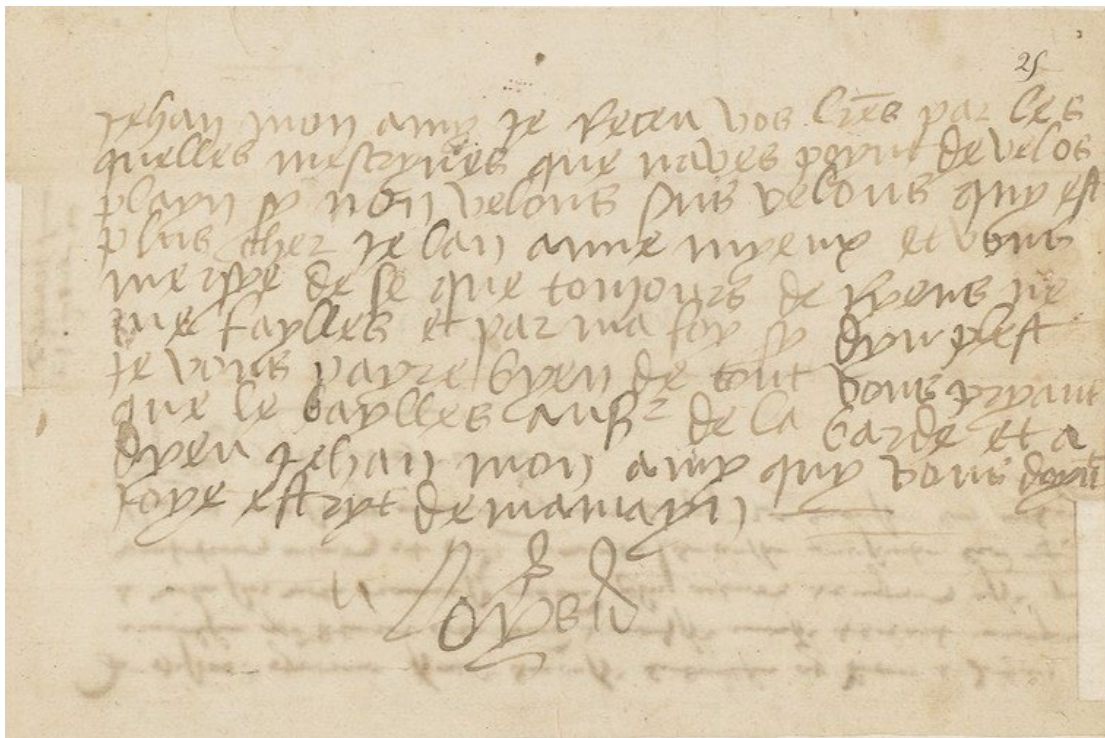 25
Jehan mon amy je receu vos lres par les
quelles mescryves que naves poynt de velos
playn sy non velous sus velous quy est
plus cher je lan anme myeux et vous
mersye de se que toujours de ryens ne
me faylles et par ma foy sy dyu plest
je vous payre byen de tout vous pryant
que le baylles au sr de la barde et a
dyeu jehan mon amy quy vous doynt
joye estryt de ma mayn
Loys